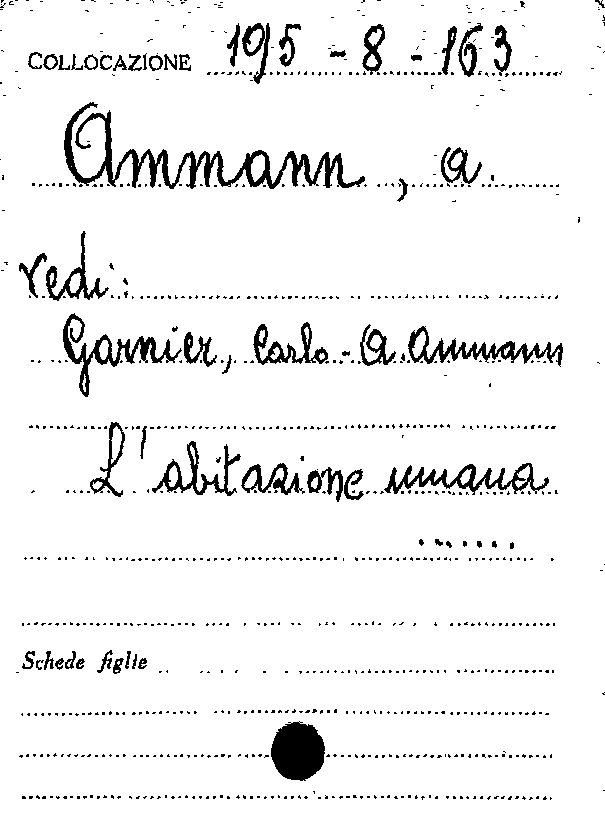 COLLOCAZIONE 195 - 8 - 163
Ammann, A.
vedi:
Garnier, Carlo - A. Ammann
L'abitazione umana
......
Schede figlie